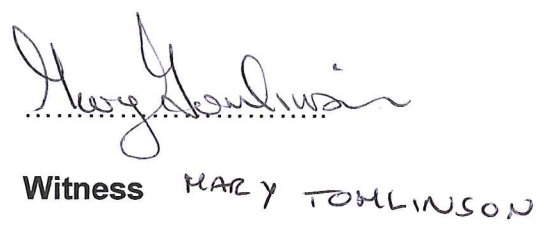 Mary Tomlinson
Witness MARY TOMLINSON